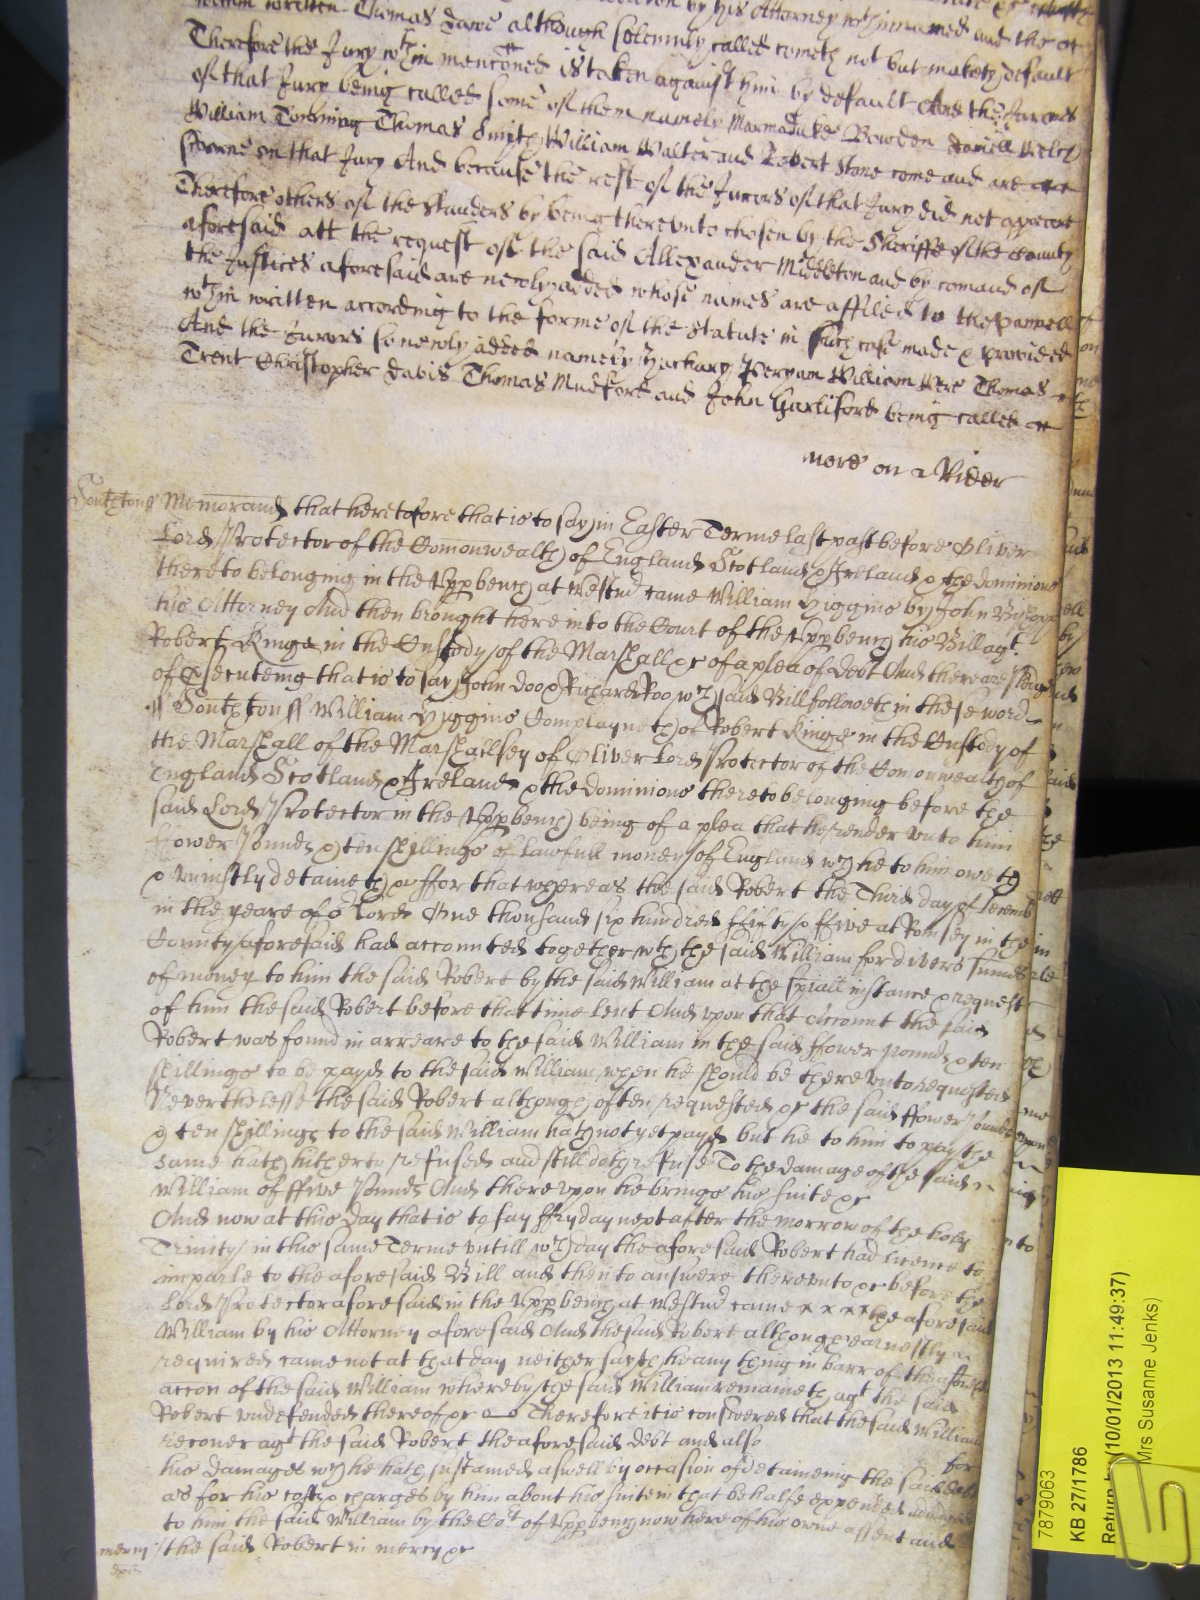 by his Attorney wthinnamed and the
written Thomas Dawe although solemnly called cometh not but maketh default
Therefore the Jury wthin mencõned is taken against him by default And the Jurors
of that Jury being called some of them namely Marmaduke Bowden
William Thomas Smith William Walter and Robert Stone come and are
sworne on that Jury And because the rest of the Jurors of that Jury did not appeare
Therefore others of the standers by being therevnto chosen by the Sheriffe of the County
aforesaid att the request of the said Allexander Middleton and by comand of
the Justices aforesaid are newly added whose names are affiled to the pannell
wthin written according to the forme of the statute in such case made & provided
And the Jurors so newly added namely Zachary Peryam William Were Thomas
Trent Christopher Davis Thomas Mudford and John Garliford being called
more on a Rider
Southton ss Memorand that heretofore that is to say in Easter Terme last past before Oliver
Lord Protector of the Comonwealth of England Scotland & Ireland & the dominions
thereto belonging in the Vpp bench at Westmr came William Higgins by John
his Attorney And then brought here into the Court of the Vpp bench his Bill agt
Robert Kinge in the Custody of the Marshall &c of a plea of debt And there are pledges
of &secuteing that is to say John Doo & Richard Roo wch said Bill followeth in these words
ss Southton ss William Higgins Complayneth of Robert Kinge in the Custody of
the Marshall of the Marshallsey of Oliver Lord Protector of the Comonwealth of
England Scotland & Ireland & the dominions thereto belonging before the
said Lord Protector in the Vpp bench being of a plea that he render vnto him
ffower Pounds & ten shillings of lawfull money of England wch he to him oweth
& vniustly detaineth &c ffor that whereas the said Robert the Third day of
in the yeare of or Lord One thousand six hundred ffifty & ffive at Romsey in the
County aforesaid had accounted together wth the said William for divers summes
of money to him the said Robert by the said William at the spiall instance & request
of him the said Robert before that time lent And vpon that Account the said
Robert was found in arreare to the said William in the said ffower pounds & ten
shillings to be payd to the said William when he should be there vnto requested
Neverthelesse the said Robert although often requested &c the said ffower Pounds
& ten shillings to the said William hath not yet payd but he to him to pay the
same hath hitherto refused and still doth refuse To the damage of the said
William of ffive Pounds And there vpon he brings his suite &c
And now at this day that is to say ffryday next after the morrow of the holy
Trinity in this same Terme vntill wch day the aforesaid Robert had licence to
imparle to the aforesaid Bill and then to answere therevnto &c before the
Lord Protector aforesaid in the Vpp bench at Westmr came the aforesaid
William by his Attorney aforesaid And the said Robert although earnestly
required came not at that day neither sayth he any thing in barr of the aforesd
accon of the said William whereby the said William remaineth agt the said
Robert vndefended thereof &c Therefore it is considered that the said William
recover agt the said Robert the aforesaid debt and also for
his damages wch he hath sustained aswell by occasion of detaineing the said debt
as for his costs & charges by him about his suite in that behalfe expended
to him the said William by the Cort of Vpp bench now here of his owne assent and
the said Robert in mercy &c
7879063
KB 27/1786
Return (10/01/2013 11:49:37)
Mrs Susanne Jenks)